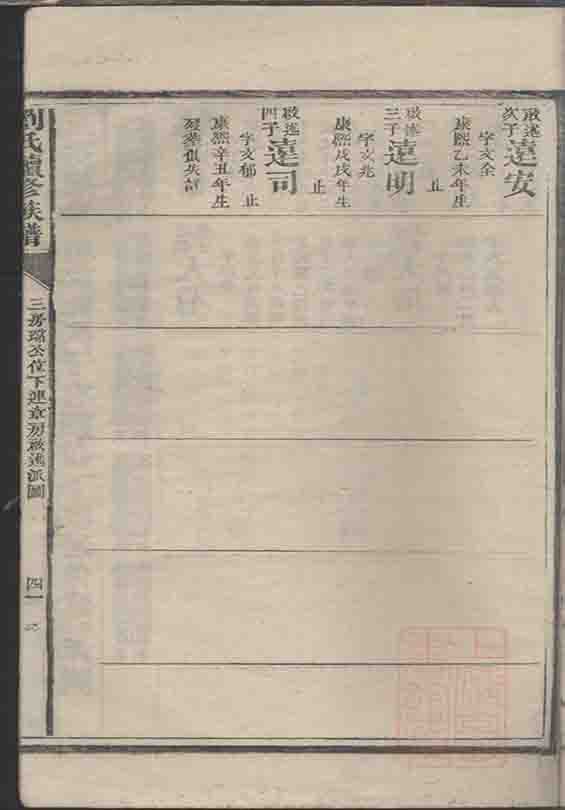 啟述次子遠安
字文全
康熙乙未年生
止
啟述三子遠明
字文兆
康熙戊戌年生
止
啟述四子遠司
字文郁 止
康熙辛丑年生
劉氏續修族譜
三房璐公位下連章房啟述派圖
四一